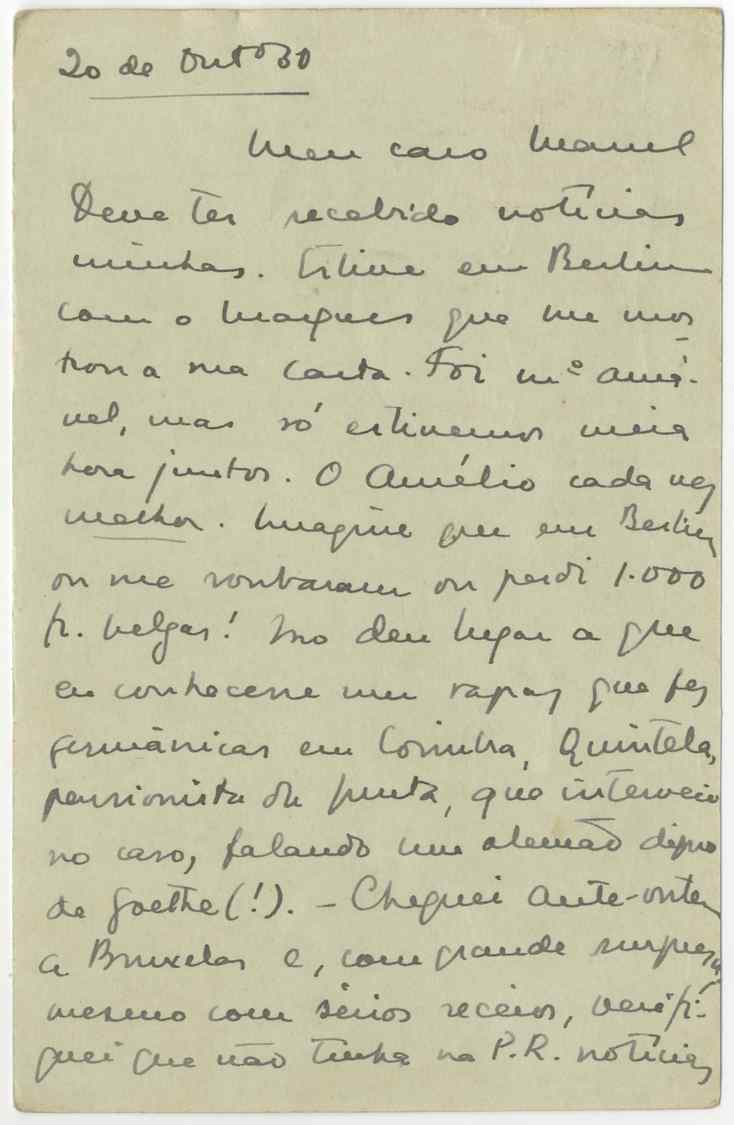 20 de Outº 30
Meu caro Manuel
Deve ter recebido notícias
minhas. Estive em Berlim
com o Marques que me mos
trou a sua carta. Foi mº amá-
vel, mas só estivemos meia
hora juntos. O Amélio cada vez
melhor. Imagine que em Berlim
ou me roubaram ou perdi 1.000
fr. belgas! Isso deu lugar a que
eu conhecesse um rapaz que fez
germânicas em Coimbra, Quintela,
pensionista da Junta, que interveio
no caso, falando um alemão digno
de Goethe (!). – Cheguei ante-ontem
a Bruxelas e, com grande surpresa,
mesmo com sérios receios, verifi-
quei que não tinha na P.R. notícias